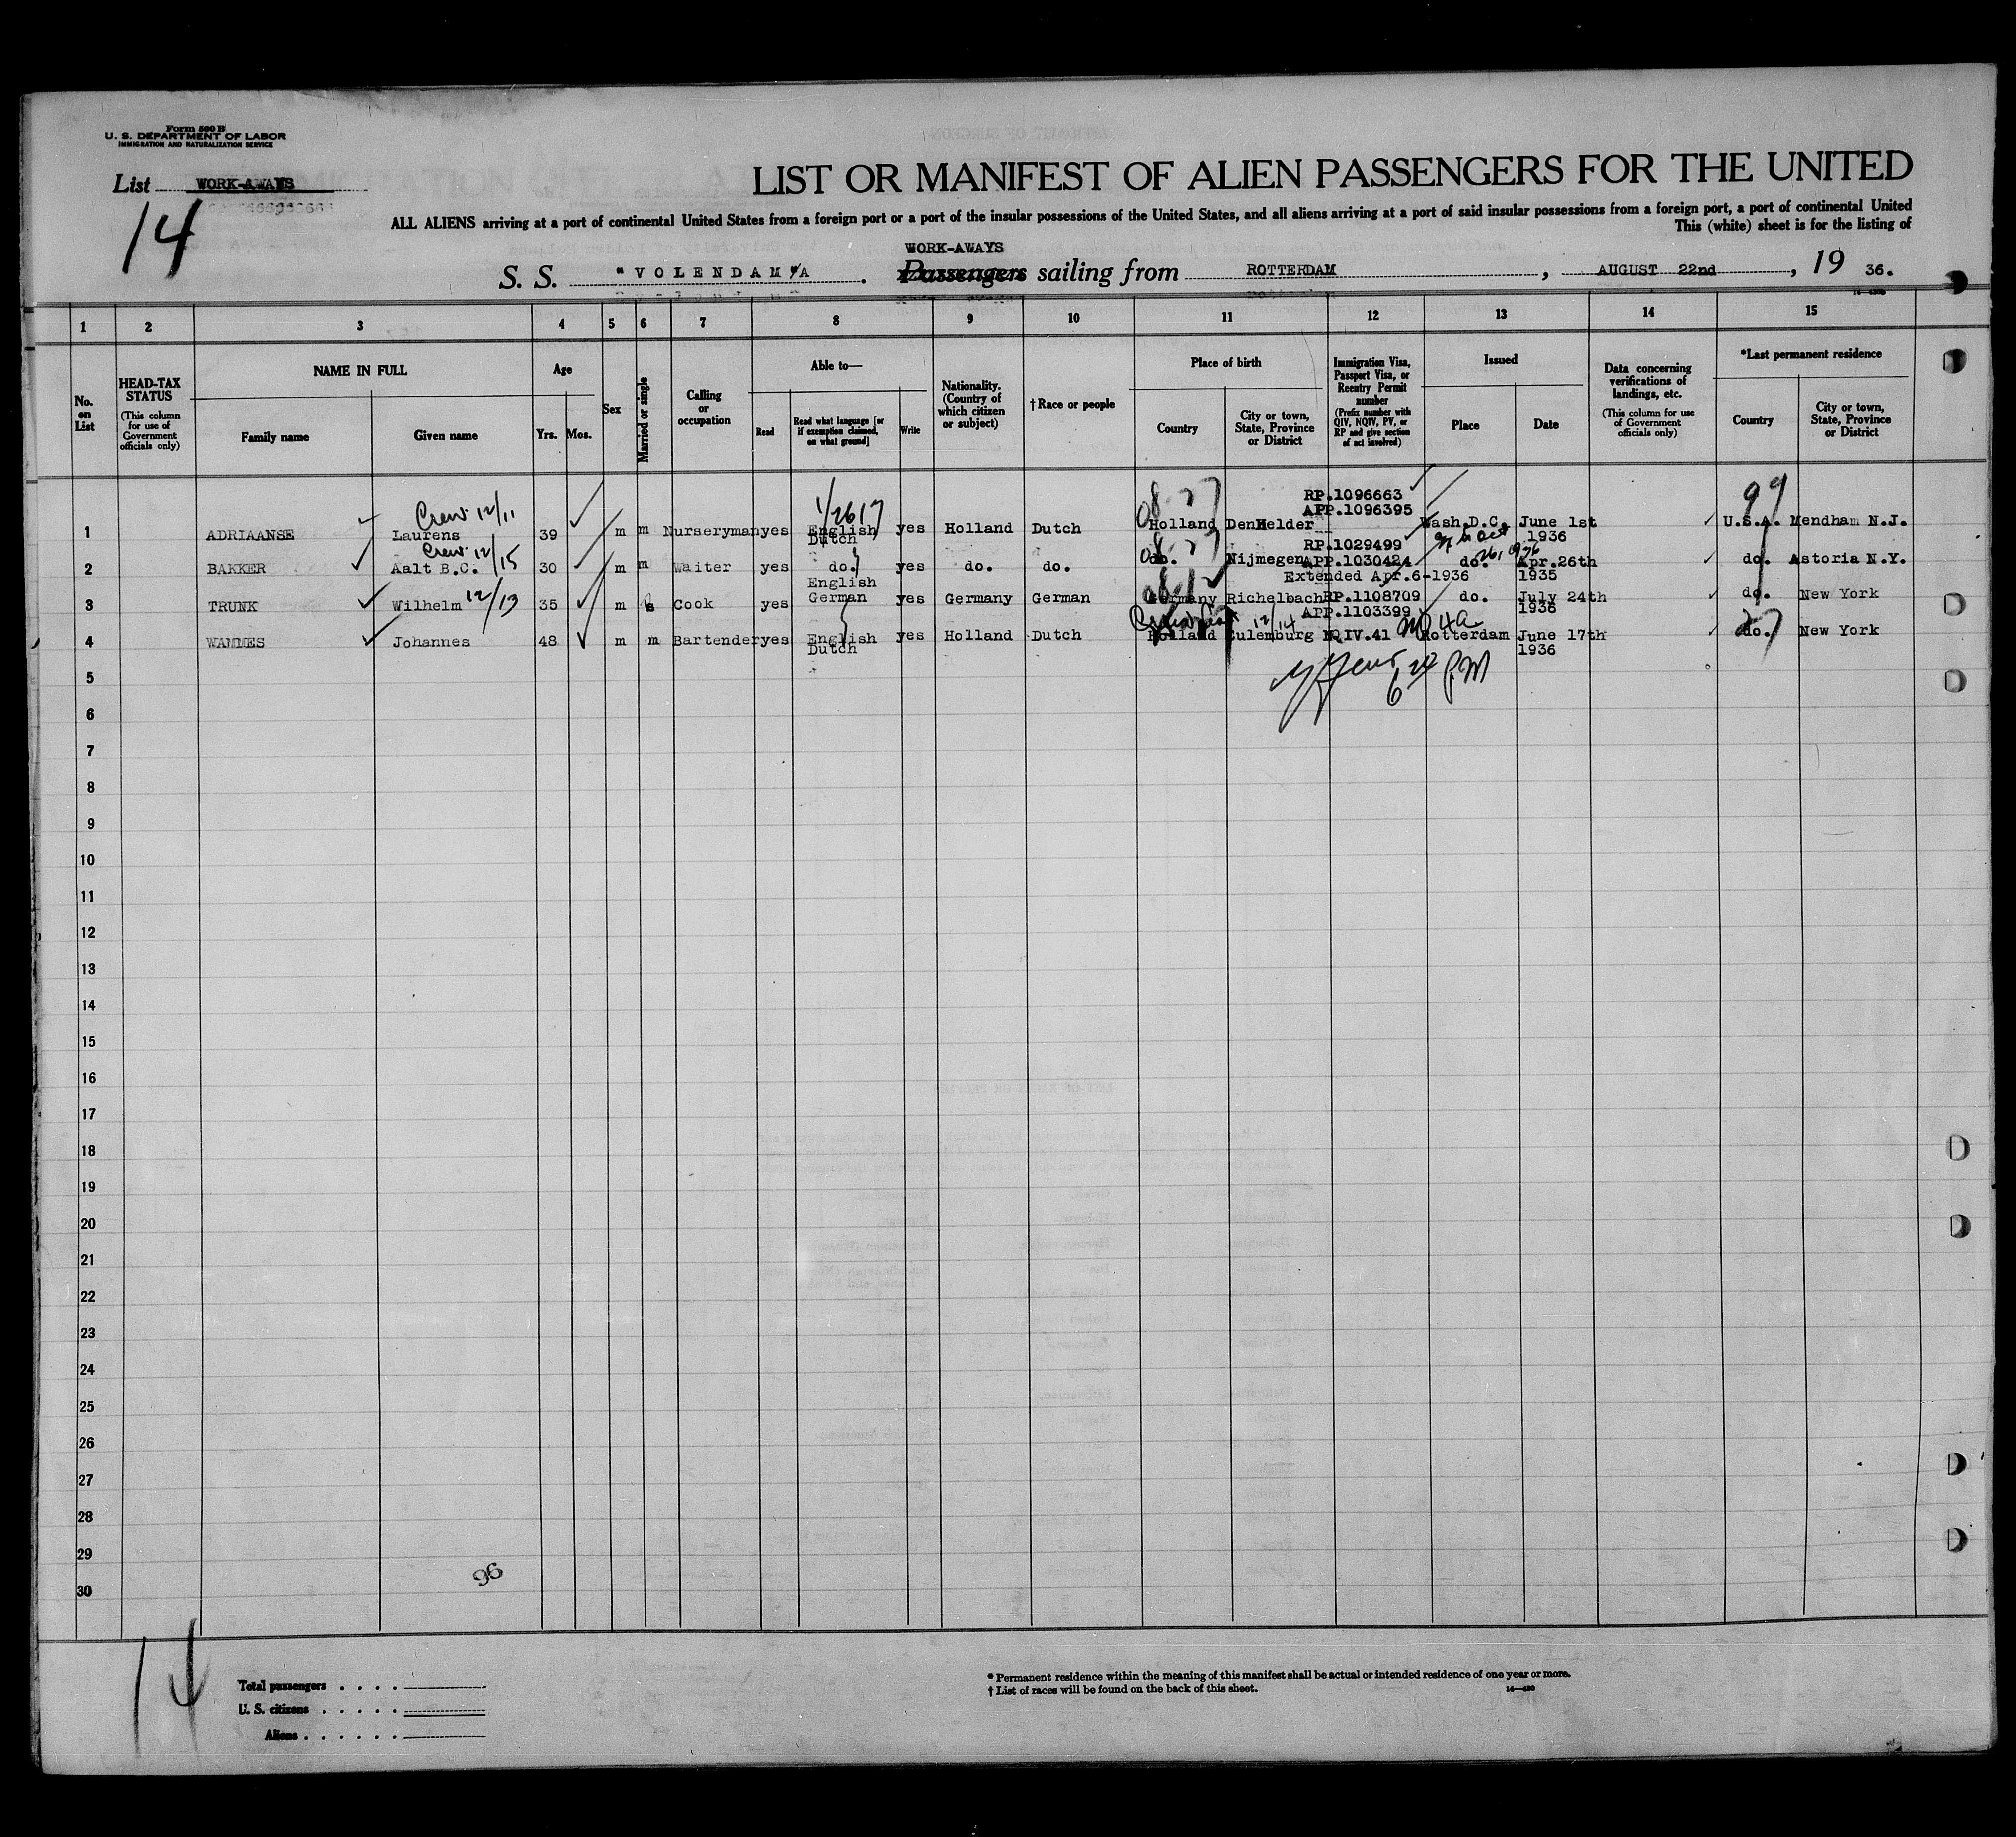 Form 500 B
U. S. DEPARTMENT OF LABOR
IMMIGRATION AND NATURALIZATION SERVICE
List WORK-AWAYS
14
LIST OR MANIFEST OF ALIEN PASSENGERS FOR THE UNITED
ALL ALIENS arriving at a port of continental United States from a foreign port or a port of the insular possessions of the United States, and all aliens arriving at a port of said insular possessions from a foreign port, a port of continental United
This (white) sheet is for the listing of
WORK-AWAYS
S. S. "VOLENDAM"A . Passengers sailing from ROTTERDAM , AUGUST 22nd , 19 36.
1 2 3 4 5 6 7 8 9 10 11 12 13 14 15
No. on List
HEAD-TAX STATUS (This column for use of Government officials only)
NAME IN FULL
Family name
Given name
Age
Yrs.
Mos.
Sex
Married or single
Calling or occupation
Able to—
Read
Read what language [or if exemption claimed, on what ground]
Write
Nationality. (Country of which citizen or subject)
† Race or people
Place of birth
Country
City or town, State, Province or District
Immigration Visa, Passport Visa, or Reentry Permit number (Prefix number with QIV, NQIV, PV, or RP and give section of act involved)
Issued
Place
Date
Data concerning verifications of landings, etc. (This column for use of Government officials only)
*Last permanent residence
Country
City or town, State, Province or District
Crew 12/11
08.27
RP.1096663
APP.1096395
99
1 ADRIAANSE Laurens 39 m m Nurseryman yes English Dutch yes Holland Dutch Holland DenHelder Wash.D.C. June 1st 1936 U.S.A. Mendham N.J.
Crew 12/15
RP.1029499
2 BAKKER Aalt B.C. 30 m m Waiter yes do. yes do. do. do. Nijmegen APP.1030424 do. Apr.26th 1935 do. Astoria N.Y.
Extended Apr.6-1936
12/13
3 TRUNK Wilhelm 35 m s Cook yes English German yes Germany German Germany Richelbach RP.1108709 do. July 24th 1936 do. New York
APP.1103399
12/14
4 WAMMES Johannes 48 m m Bartender yes English Dutch yes Holland Dutch Holland Culemburg NQIV.41 4a Rotterdam June 17th 1936 do. New York
27
PM
5
6
7
8
9
10
11
12
13
14
15
16
17
18
19
20
21
22
23
24
25
26
27
28
29
30
96
14
Total passengers . . . .
U. S. citizens . . . . .
Aliens . . . . . .
* Permanent residence within the meaning of this manifest shall be actual or intended residence of one year or more.
† List of races will be found on the back of this sheet.
14—430